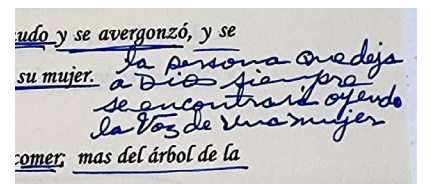 udo y se avergonzó, y se
la persona que deja
su mujer.
a Dios siempre
se encontrará oyendo
la Voz de una mujer
comer; mas del árbol de la